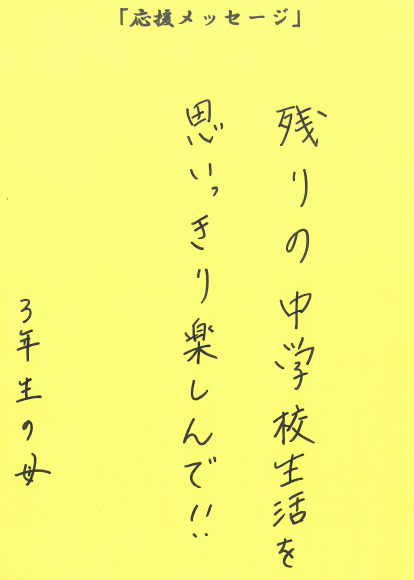 「応援メッセージ」
残りの中学校生活を
思いっきり楽しんで!!
3年生の母